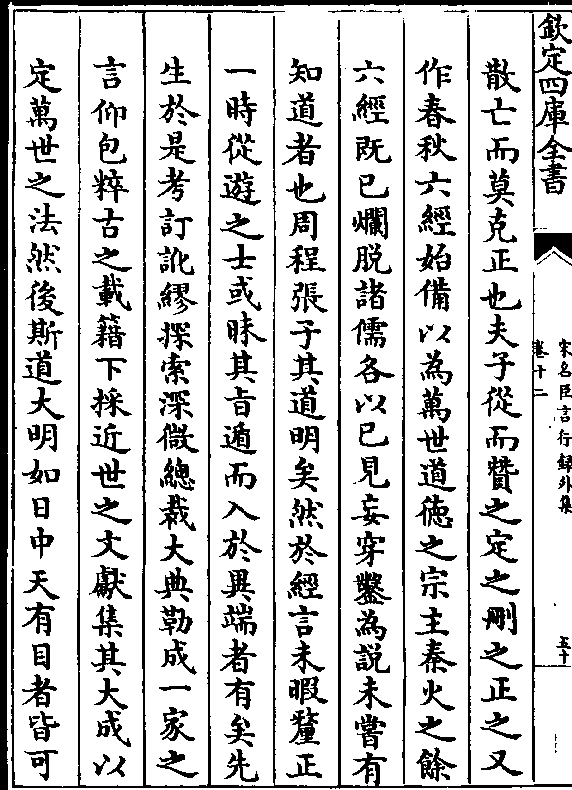 欽定四庫全書
宋名臣言行録外集
卷十二
五十
散亡而莫克正也夫子從而贊之定之刪之正之又
作春秋六經始備以為萬世道徳之宗主秦火之餘
六經既已爛脱諸儒各以已見妄穿鑿為説未嘗有
知道者也周程張子其道明矣然於經言未暇釐正
一時從遊之士或昧其㫖遁而入於異端者有矣先
生於是考訂訛繆探索深微總裁大典勒成一家之
言仰包粹古之載籍下採近世之文獻集其大成以
定萬世之法然後斯道大明如日中天有目者皆可